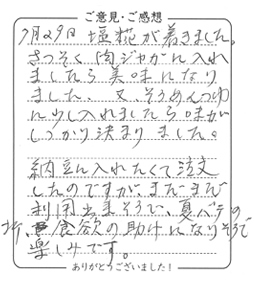 ご意見・ご感想
7月29日 塩糀が着きました。
さっそく肉ジャガに入れ
ましたら美味になり
ました。又、そうめんつゆ
に少し入れましたら味が
しっかり決まりました。
納豆に入れたくて注文
したのですが、まだまだ
利用出来そうで、夏バテの
折、食欲の助けになりそうで
楽しみです。
ありがとうございました!